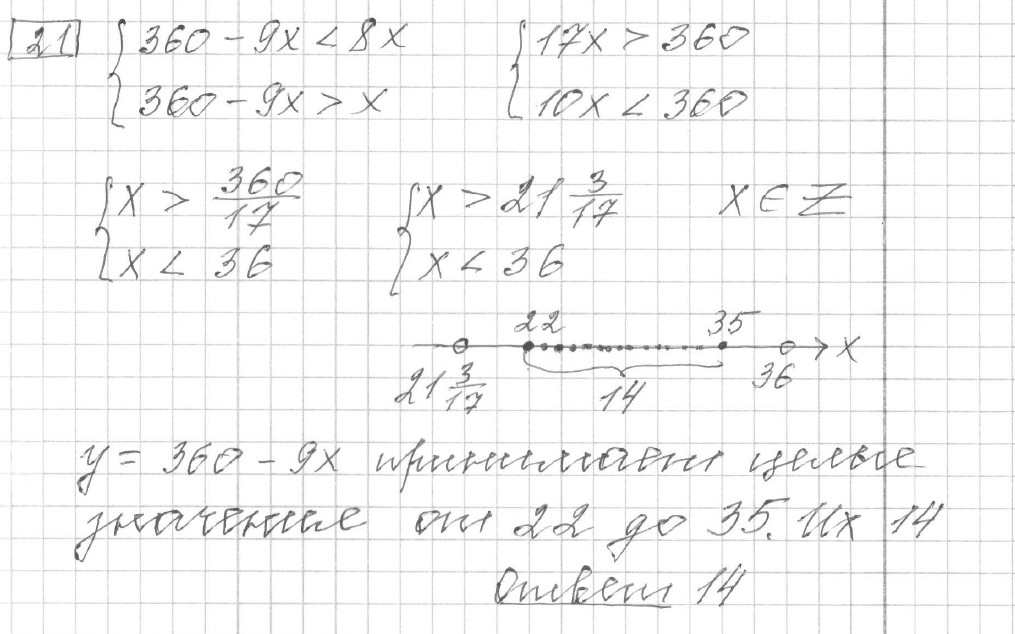 21 { 360 - 9x < 8x { 17x > 360
{ 360 - 9x > x { 10x < 360
{ x > 360/17 { x > 21 3/17 x ∈ Z
{ x < 36 { x < 36
22 35
x
21 3/17 14 36
y = 360 - 9x принимает целые
значение от 22 до 35. Их 14
Ответ 14